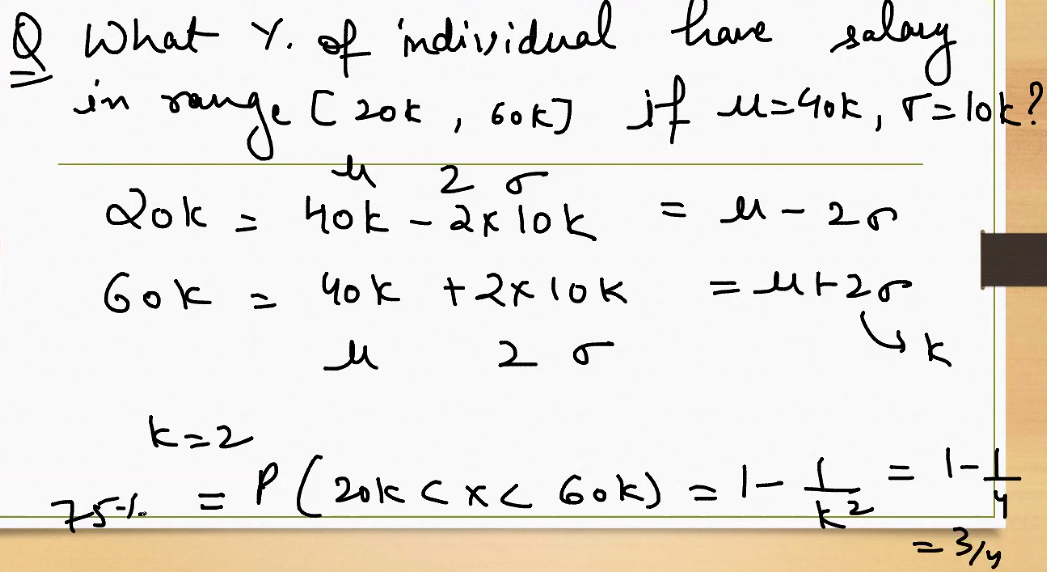 Q What % of individual have salary
in range [20k, 60k] if μ=40k, σ=10k?
μ 2 σ
20k = 40k - 2x10k = μ - 2σ
60k = 40k + 2x10k = μ+2σ
μ 2 σ → k
k=2
75% = P(20k < x < 60k) = 1 - 1/k² = 1 - 1/4
= 3/4